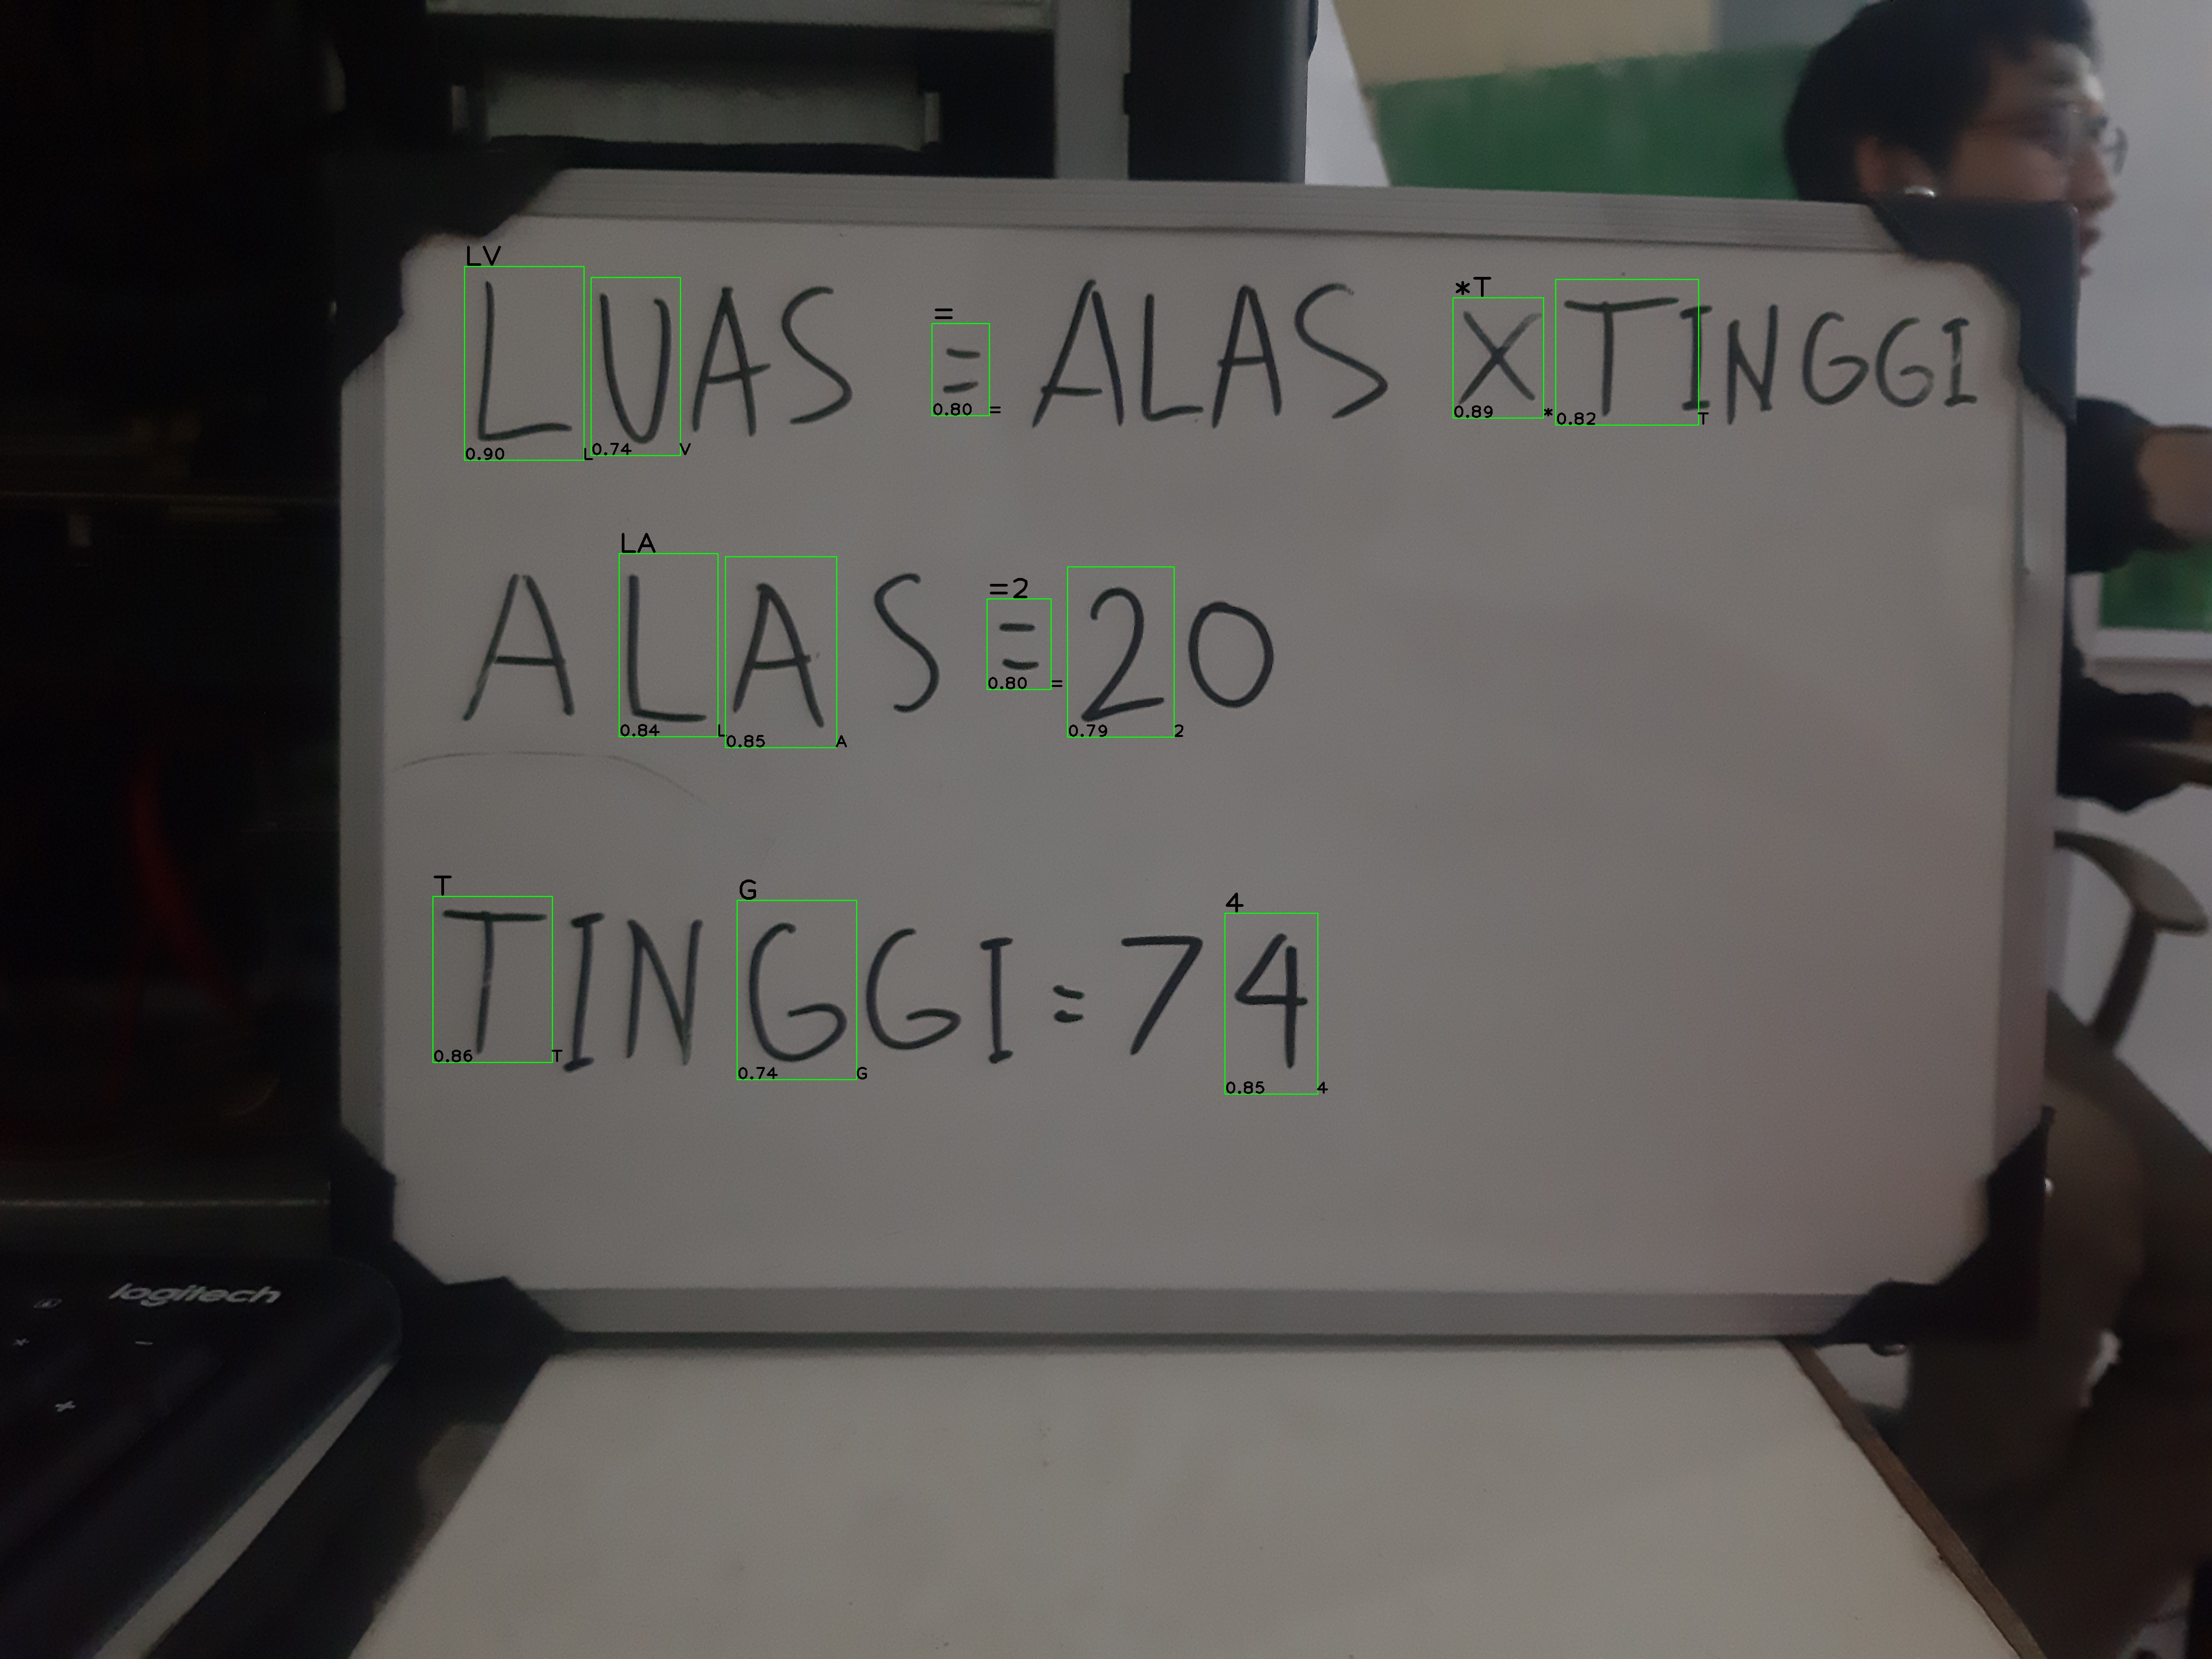 LV *T
=
LUAS = ALAS X TINGGI
0.90 L 0.74 V 0.80 = 0.89 * 0.82 T
LA =2
ALAS = 20
0.84 L 0.85 A 0.80 = 0.79 2
T G 4
TINGGI = 74
0.86 T 0.74 G 0.85 4
logitech
* -
+